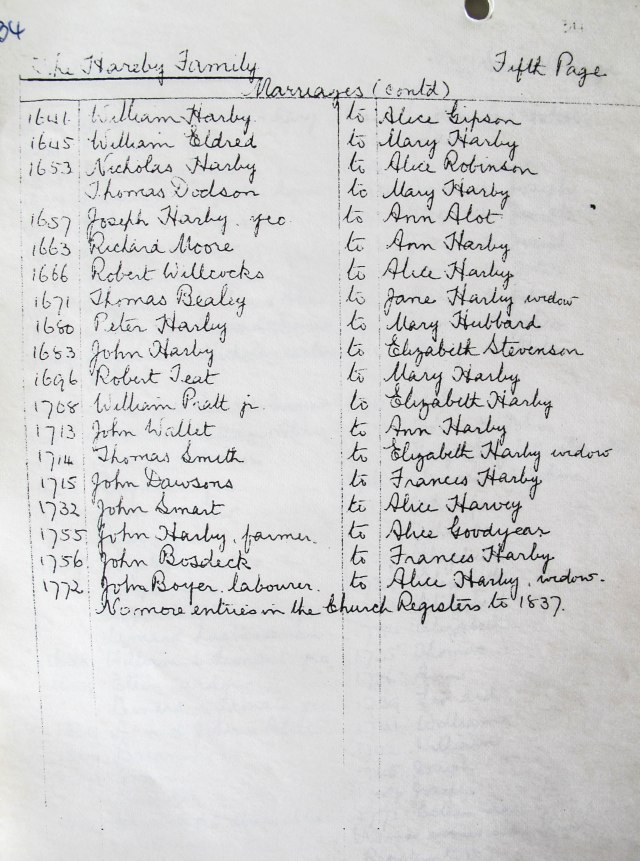 34
The Hareby Family Fifth Page
Marriages (contd)
1641 William Harby to Alice Gipson
1645 William Eldred to Mary Harby
1653 Nicholas Harby to Alice Robinson
Thomas Dodson to Mary Harby
1657 Joseph Harby. yeo to Ann Alot
1663 Richard Moore to Ann Harby
1666 Robert Willcocks to Alice Harby
1671 Thomas Bealey to Jane Harby widow
1680 Peter Harby to Mary Hubbard
1683 John Harby to Elizabeth Stevenson
1696 Robert Teat to Mary Harby
1708 William Pratt jr. to Elizabeth Harby
1713 John Wallet to Ann Harby
1714 Thomas Smith to Elizabeth Harby widow
1715 John Dawsons to Frances Harby
1732 John Smart to Alice Harvey
1755 John Harby. farmer. to Alice Goodyear
1756 John Bosdeck to Frances Harby
1772 John Boyer. labourer. to Alice Harby. widow.
No more entries in the Church Registers to 1837.